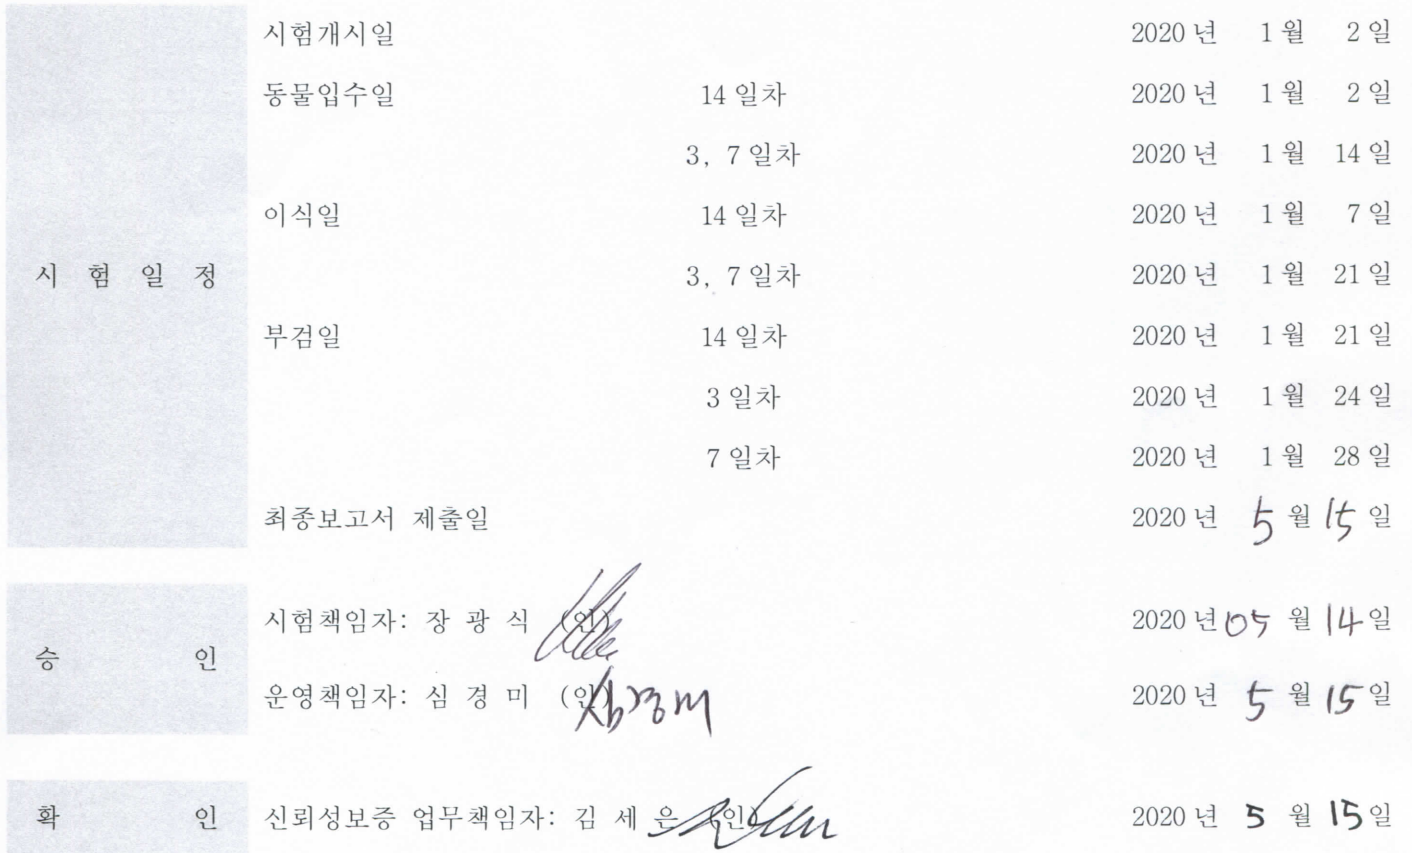 시험개시일 2020 년 1 월 2 일
동물입수일 14 일차 2020 년 1 월 2 일
3, 7 일차 2020 년 1 월 14 일
이식일 14 일차 2020 년 1 월 7 일
시 험 일 정 3, 7 일차 2020 년 1 월 21 일
부검일 14 일차 2020 년 1 월 21 일
3 일차 2020 년 1 월 24 일
7 일차 2020 년 1 월 28 일
최종보고서 제출일 2020 년 5 월 15 일
시험책임자: 장 광 식 (인) 2020 년 05 월 14 일
승 인
운영책임자: 심 경 미 (인) 심경미 2020 년 5 월 15 일
확 인 신뢰성보증 업무책임자: 김 세 은 (인) 2020 년 5 월 15 일